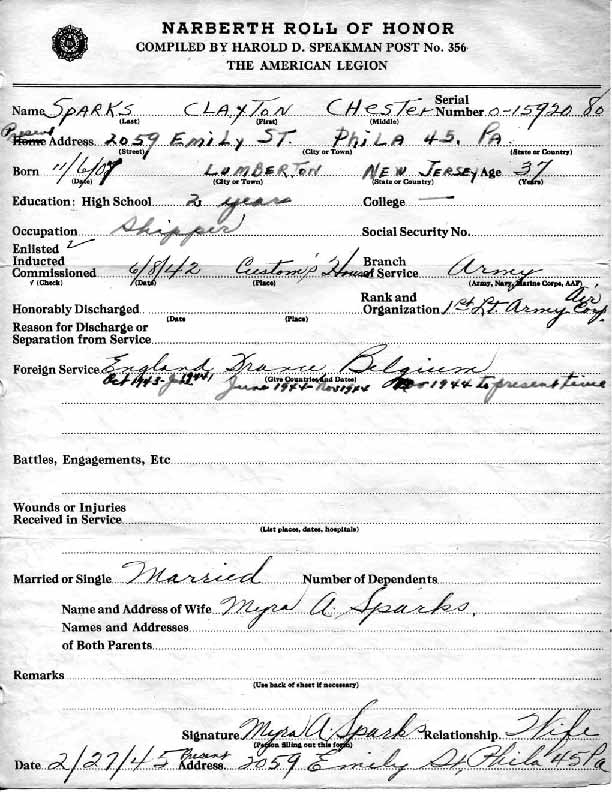 NARBERTH ROLL OF HONOR
COMPILED BY HAROLD D. SPEAKMAN POST No. 356
THE AMERICAN LEGION
Name SPARKS CLAYTON CHester Serial Number O-15920 80
(Last) (First) (Middle)
Present Home Address 2059 Emily ST. PhiLA 45, PA.
(Street) (City or Town) (State or Country)
Born 11/6/07 LUMBERTON NEW JERSEY Age 37
(Date) (City or Town) (State or Country) (Years)
Education: High School 2 years College —
Occupation Shipper Social Security No.
Enlisted ✓
Inducted
Commissioned 6/8/42 Custom's House Branch of Service Army
✓ (Check) (Date) (Place) (Army, Navy, Marine Corps, AAF)
Honorably Discharged Rank and Organization 1st Lt. Army Air Corp.
(Date (Place)
Reason for Discharge or
Separation from Service
Foreign Service England, France, Belgium
(Give Countries and Dates)
Oct 1943- 1944 June 1944 - Nov 1944 Nov 1944 to present time
Battles, Engagements, Etc
Wounds or Injuries
Received in Service
(List places, dates, hospitals)
Married or Single Married Number of Dependents
Name and Address of Wife Myra A. Sparks.
Names and Addresses
of Both Parents
Remarks
(Use back of sheet if necessary)
Signature Myra A. Sparks Relationship Wife
(Person filling out this form)
Date 2/27/45 Present Address. 2059 Emily St, Phila 45 Pa